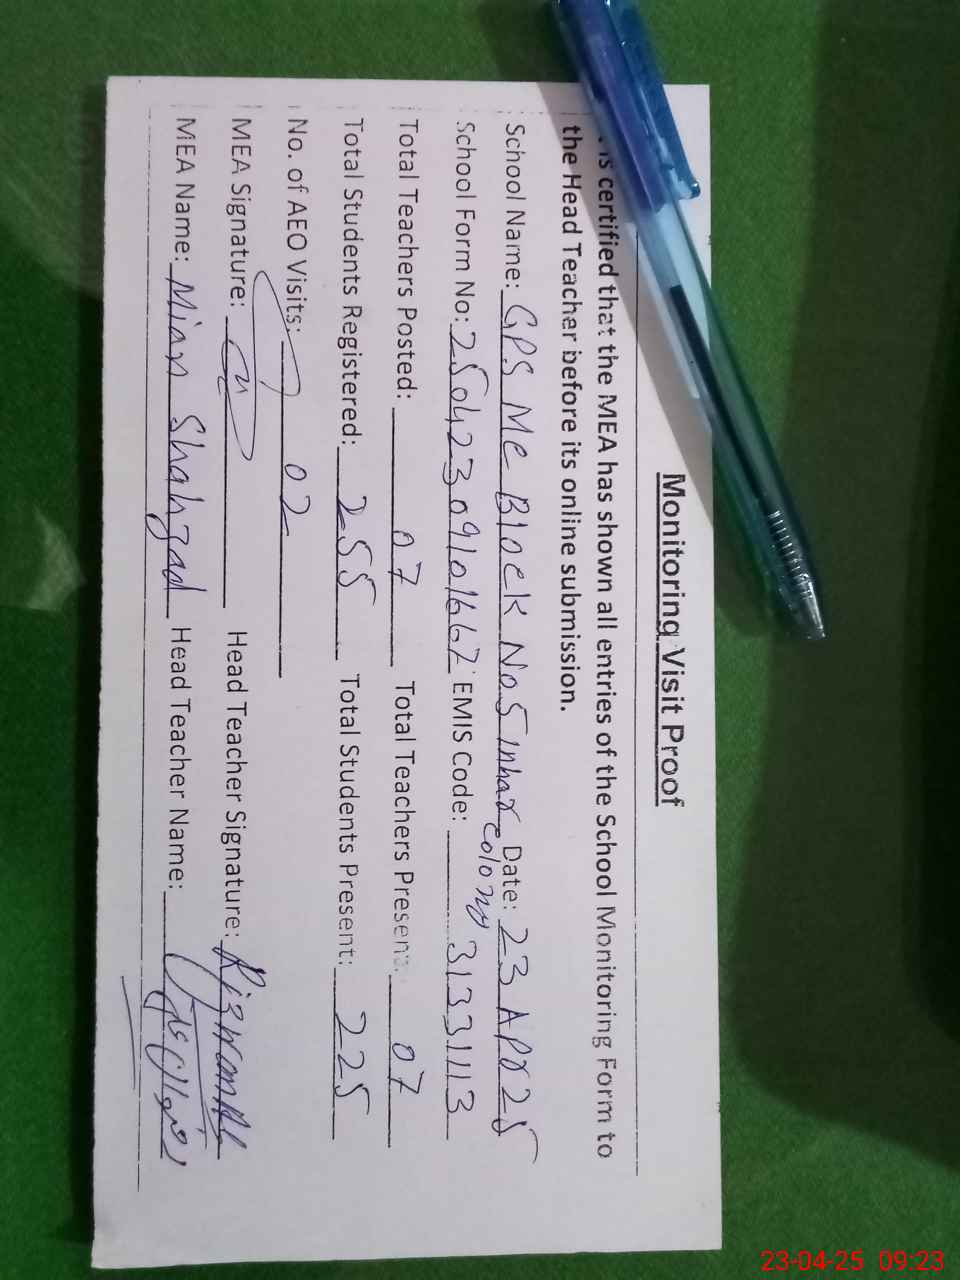 Monitoring Visit Proof
is certified that the MEA has shown all entries of the School Monitoring Form to
the Head Teacher before its online submission.
School Name: GPS Me Block No 5 inhar colony Date: 23 Apr 25
School Form No: 25042309101667 EMIS Code: 31331113
Total Teachers Posted: 07 Total Teachers Present: 07
Total Students Registered: 255 Total Students Present: 225
No. of AEO Visits: 02
MEA Signature: Head Teacher Signature:
MEA Name: Mian Shahzad Head Teacher Name:
23-04-25 09:23